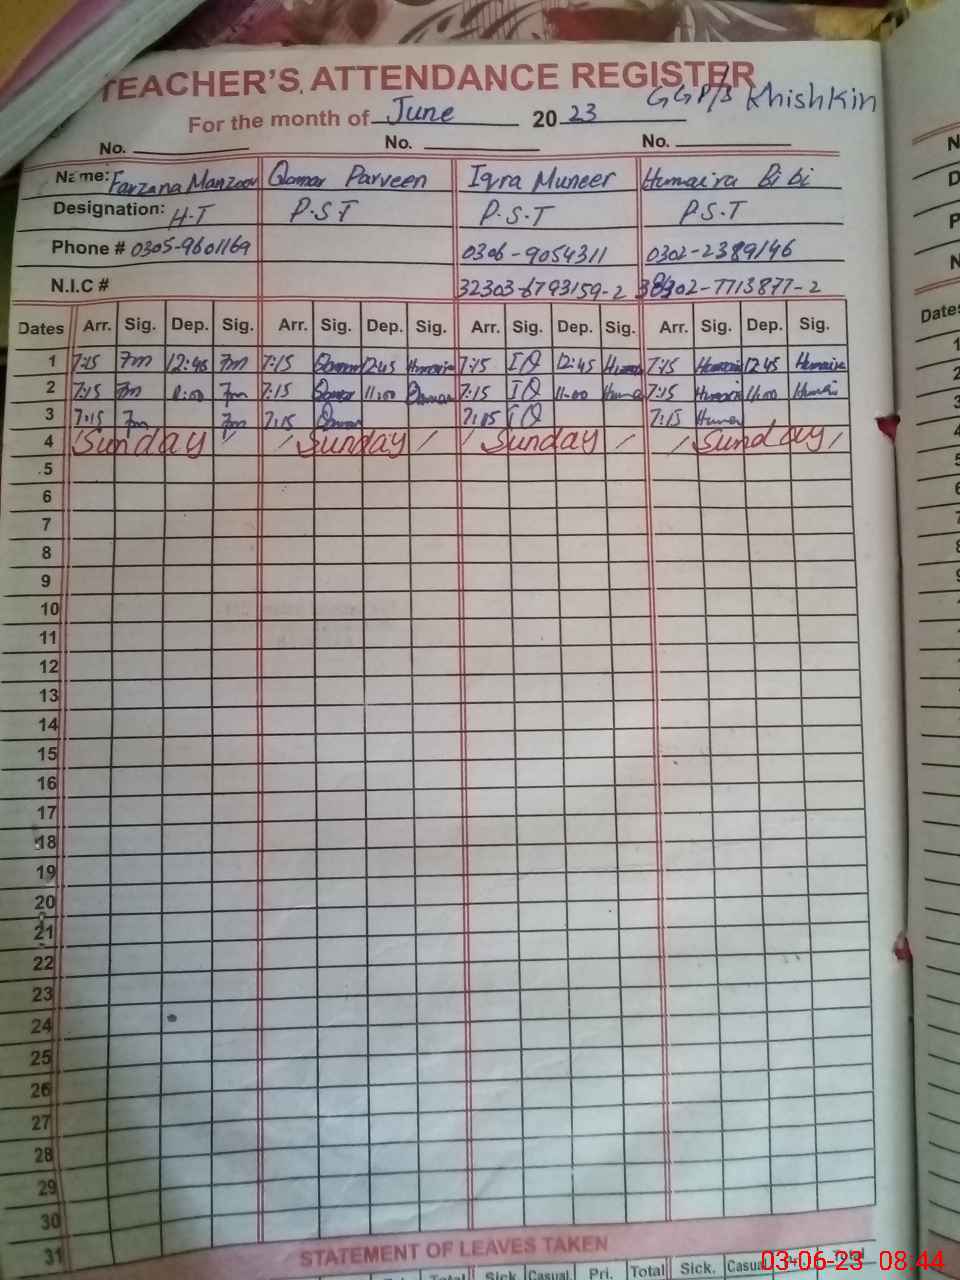 TEACHER'S ATTENDANCE REGISTER
GGP/S Khishkin
For the month of June 2023
No. No. No.
Name: Farzana Manzoor Qamar Parveen Iqra Muneer Humaira Bibi
Designation: H-T P.S.T P.S.T P.S.T
Phone # 0305-9601169 0306-9054311 0302-2389146
N.I.C # 32303-6793159-2 -7713877-2
Dates Arr. Sig. Dep. Sig. Arr. Sig. Dep. Sig. Arr. Sig. Dep. Sig. Arr. Sig. Dep. Sig.
1 7:15 7m 12:45 7m 7:15 Qamar 12:45 7:15 IQ 12:45 7:15 Humaira 12:45 Humaira
2 7:15 7m 7m 7:15 Qamar 11:00 Qamar 7:15 IQ 11:00 Huma 7:15 Humaira 11:00 Humai
3 7:15 7m 7m 7:15 Qamar 7:15 IQ 7:15 Humai
4 Sunday Sunday Sunday Sunday
5
6
7
8
9
10
11
12
13
14
15
16
17
18
19
20
21
22
23
24
25
26
27
28
29
30
31
STATEMENT OF LEAVES TAKEN
Total Sick Casual. Pri. Total Sick. Casual Pri. Total
03-06-23 08:44
Dates